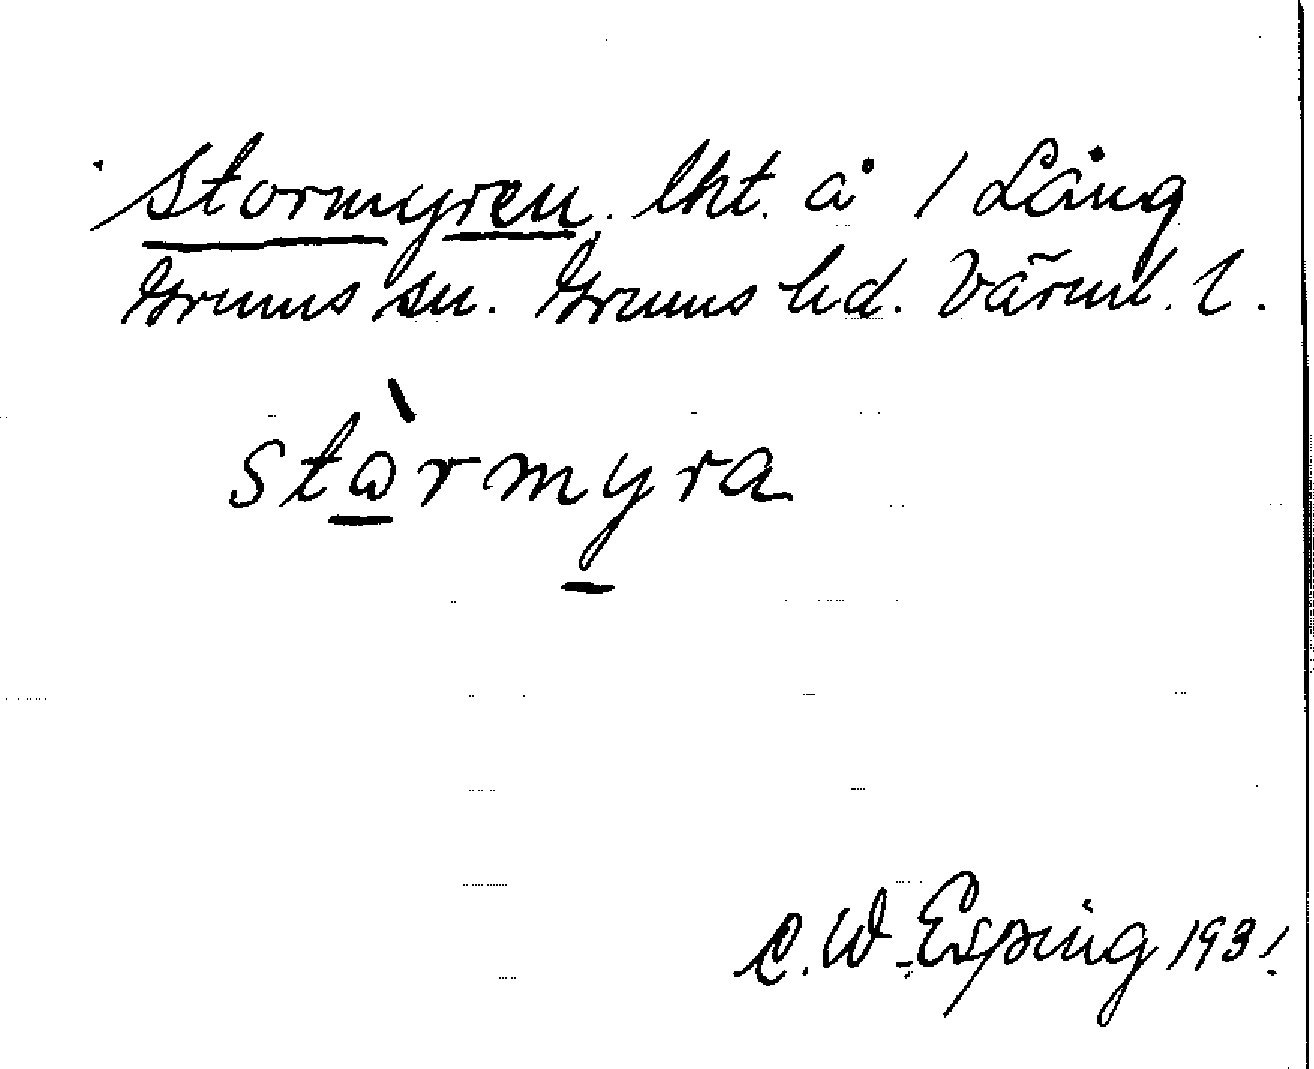 Stormyren, lht. å 1 Lång
Grums sn. Grums hd. Värml. l.
stɷ̀rmyra
C. W. Esping 1931.